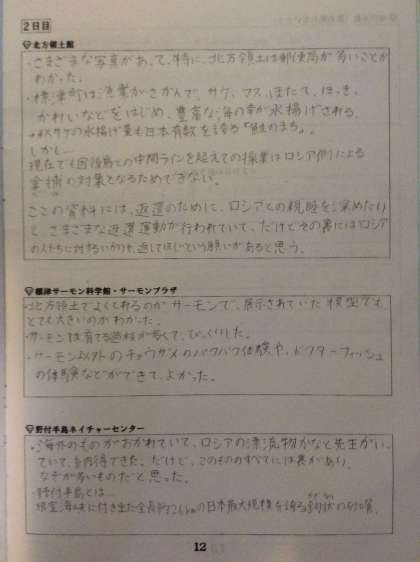 2日目
北方領土館
・さまざまな写真があって、特に、北方領土は郵便局が多いことが
わかった。
・標津町は漁業がさかんで、サケ、マス、ほたて、ほっき、
かれいなどをはじめ、豊富な海の幸が水揚げされる。
サケの水揚げ量も日本有数を誇る「鮭のまち」。
しかし…
現在でも国後島との中間ラインを超えての操業はロシア側による
拿捕の対象となるためできない。
ここの資料には、返還のために、ロシアとの親睦を深めたり
と、さまざまな返還運動が行われていて、だけどその裏にはロシア
の人たちに対するいかりや、返してほしいという願いがあると思う。
標津サーモン科学館・サーモンプラザ
・北方領土でよくとれるのがサーモンで、展示されていた模型でも
とても大きいのがわかった。
・サーモンは育てる過程が長くて、びっくりした。
・サーモン以外のチョウザメのパクパク体験や、ドクターフィッシュ
の体験などができて、よかった。
野付半島ネイチャーセンター
・海外のものがおかれていて、ロシアの漂流物かなと先生がい
っていて、納得できた。だけど、このもののすべてには裏があり、
なぞが多いものだと思った。
・野付半島とは…
根室海峡に付き出た全長約26kmの日本最大規模を誇る鉤状の砂嘴。
12